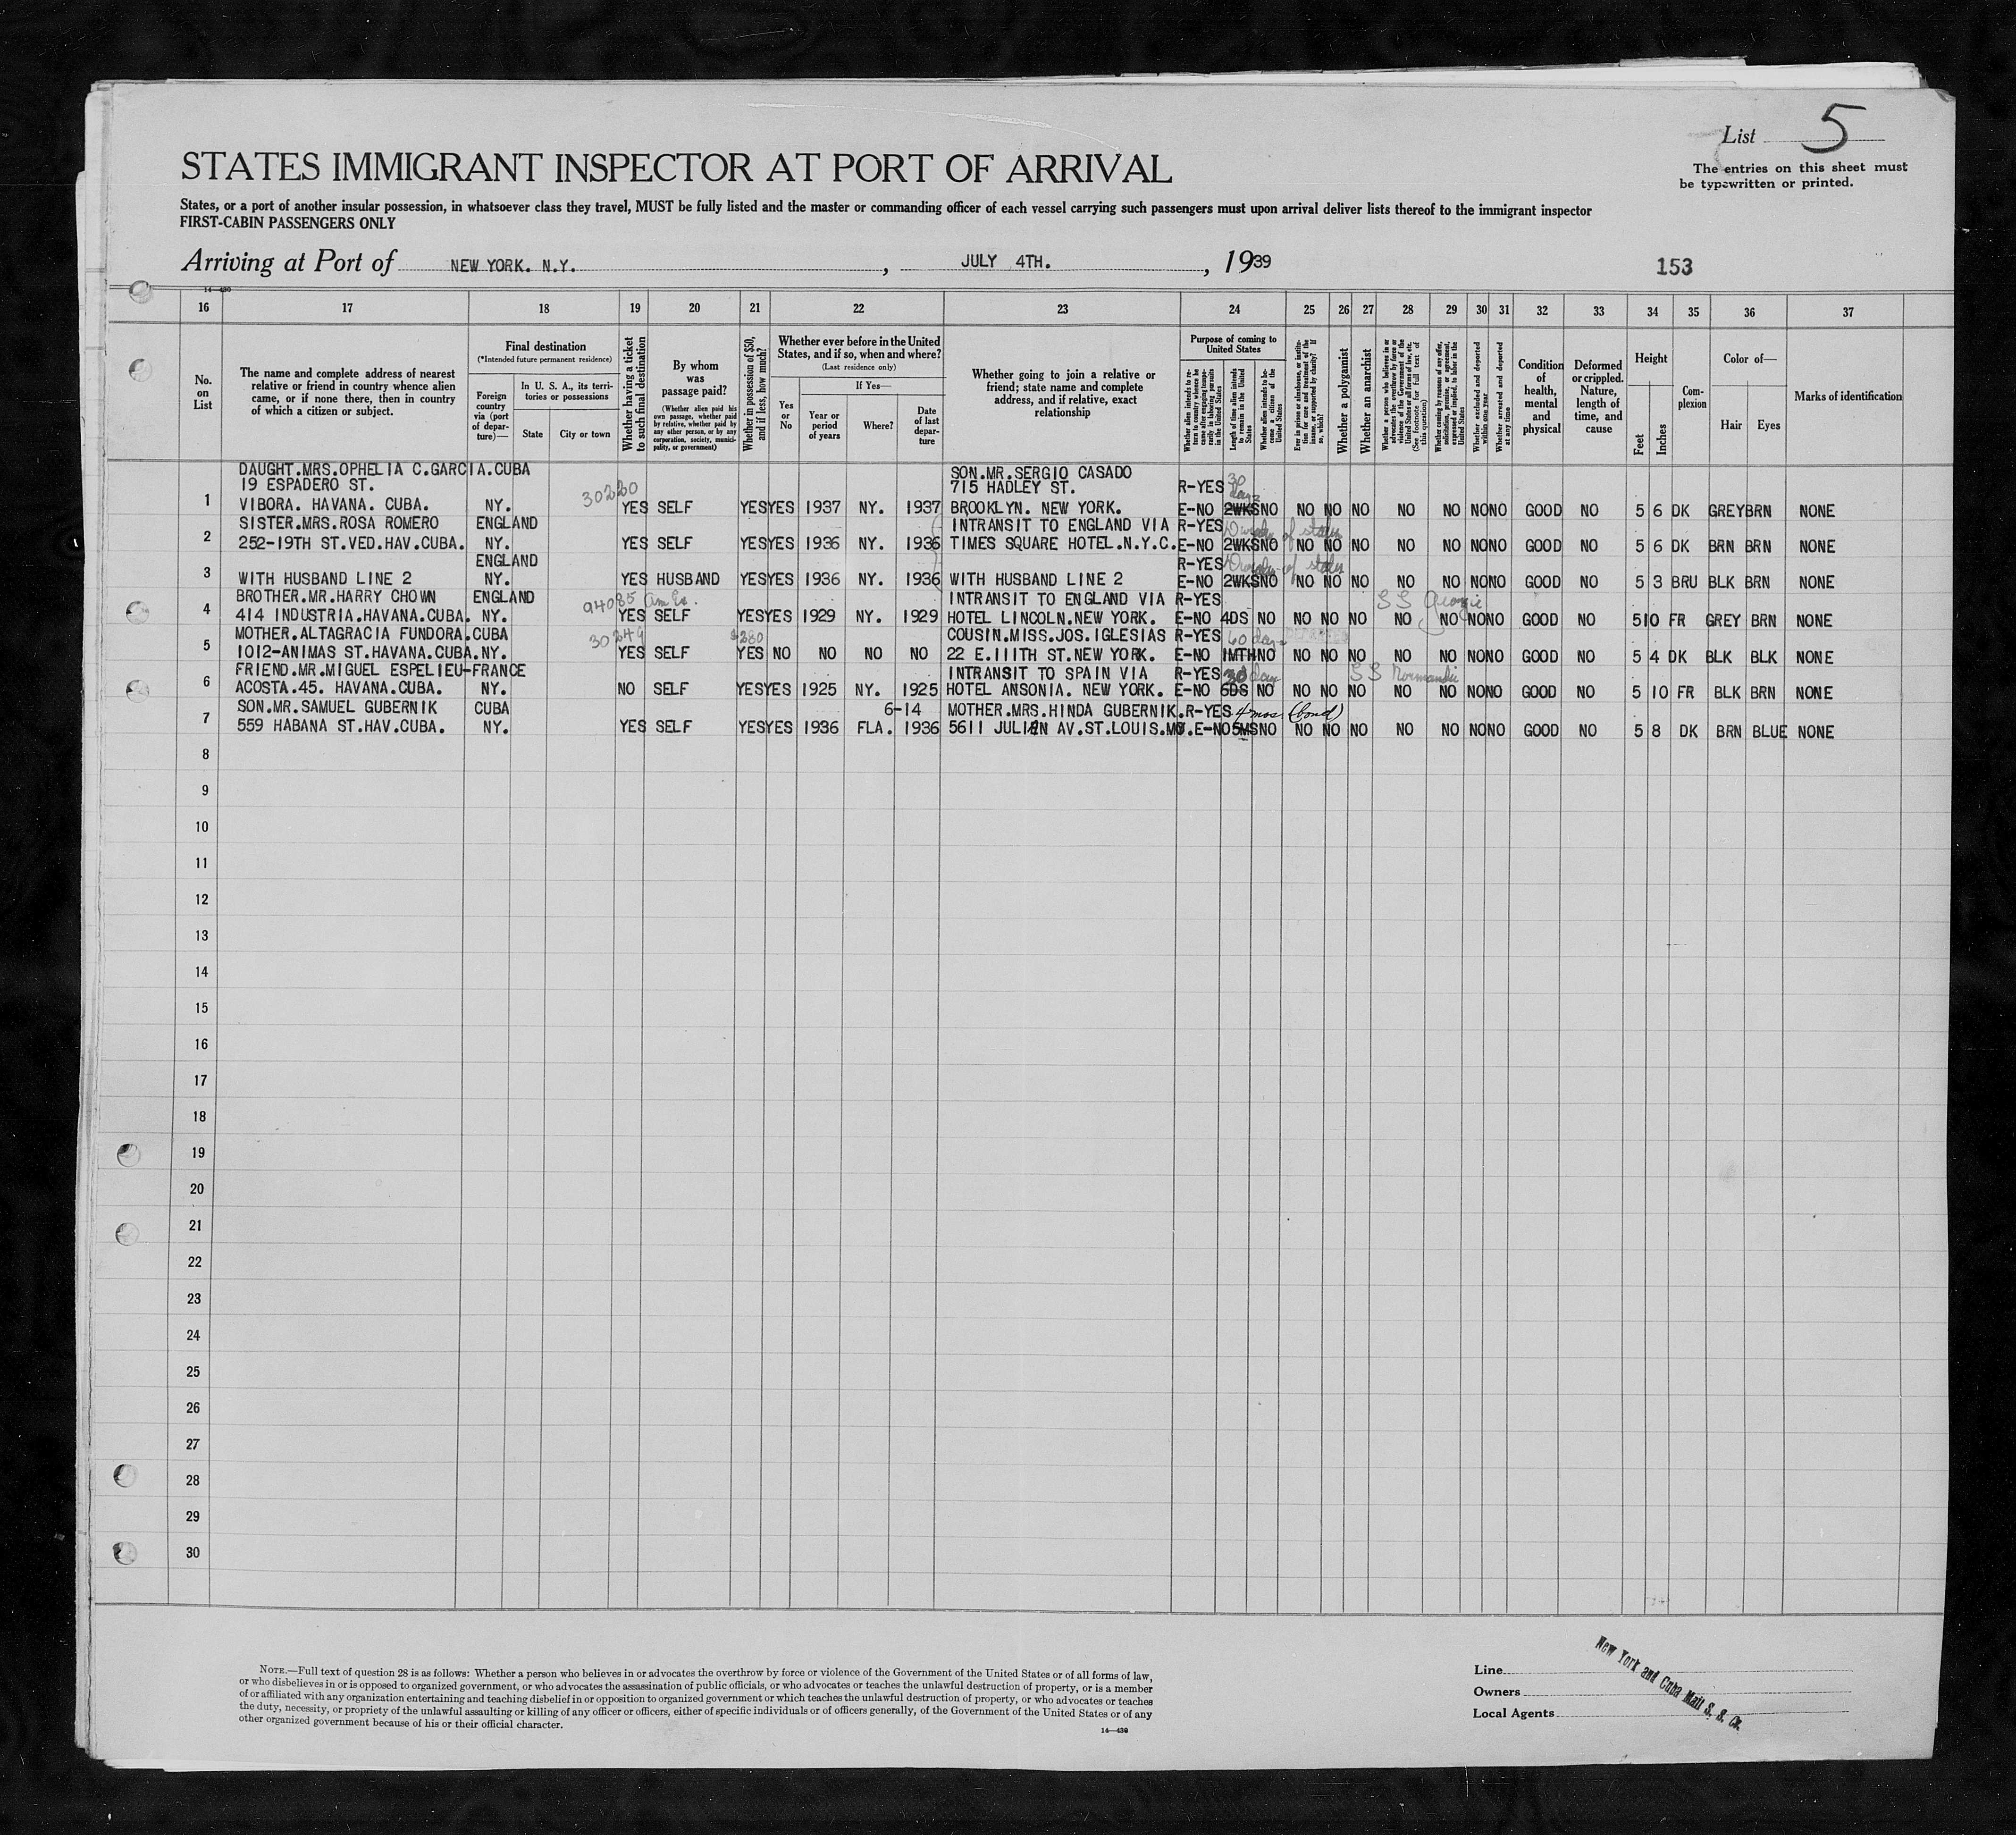 List 5
The entries on this sheet must
be typewritten or printed.
STATES IMMIGRANT INSPECTOR AT PORT OF ARRIVAL
States, or a port of another insular possession, in whatsoever class they travel, MUST be fully listed and the master or commanding officer of each vessel carrying such passengers must upon arrival deliver lists thereof to the immigrant inspector
FIRST-CABIN PASSENGERS ONLY
Arriving at Port of NEW YORK. N.Y. , JULY 4TH. , 1939
153
16 17 18 19 20 21 22 23 24 25 26 27 28 29 30 31 32 33 34 35 36 37
No. on List
The name and complete address of nearest relative or friend in country whence alien came, or if none there, then in country of which a citizen or subject.
Final destination
(*Intended future permanent residence)
Foreign country via (port of departure)—
In U. S. A., its territories or possessions
State
City or town
Whether having a ticket to such final destination
By whom was passage paid?
(Whether alien paid his own passage, whether paid by relative, whether paid by any other person, or by any corporation, society, municipality, or government)
Whether in possession of $50, and if less, how much?
Whether ever before in the United States, and if so, when and where?
(Last residence only)
Yes or No
If Yes—
Year or period of years
Where?
Date of last departure
Whether going to join a relative or friend; state name and complete address, and if relative, exact relationship
Purpose of coming to United States
Length of time alien intends to remain in the United States
Whether alien intends to become a citizen of the United States
Whether a polygamist
Whether an anarchist
Whether excluded and deported within one year
Whether arrested and deported at any time
Condition of health, mental and physical
Deformed or crippled. Nature, length of time, and cause
Height
Feet
Inches
Complexion
Color of—
Hair
Eyes
Marks of identification
DAUGHT.MRS.OPHELIA C.GARCIA.CUBA SON.MR.SERGIO CASADO
19 ESPADERO ST. 30220 715 HADLEY ST. R-YES 30 days
1 VIBORA. HAVANA. CUBA. NY. YES SELF YES YES 1937 NY. 1937 BROOKLYN. NEW YORK. E-NO 2WKS NO NO NO NO NO NO NO NO GOOD NO 5 6 DK GREY BRN NONE
SISTER.MRS.ROSA ROMERO ENGLAND INTRANSIT TO ENGLAND VIA R-YES
2 252-19TH ST.VED.HAV.CUBA. NY. YES SELF YES YES 1936 NY. 1936 TIMES SQUARE HOTEL.N.Y.C. E-NO 2WKS NO NO NO NO NO NO NO NO GOOD NO 5 6 DK BRN BRN NONE
ENGLAND R-YES
3 WITH HUSBAND LINE 2 NY. YES HUSBAND YES YES 1936 NY. 1936 WITH HUSBAND LINE 2 E-NO 2WKS NO NO NO NO NO NO NO NO GOOD NO 5 3 BRU BLK BRN NONE
BROTHER.MR.HARRY CHOWN ENGLAND 94085 INTRANSIT TO ENGLAND VIA R-YES S S Georgic
4 414 INDUSTRIA.HAVANA.CUBA. NY. YES SELF YES YES 1929 NY. 1929 HOTEL LINCOLN.NEW YORK. E-NO 4DS NO NO NO NO NO NO NO NO GOOD NO 5 10 FR GREY BRN NONE
MOTHER.ALTAGRACIA FUNDORA.CUBA 30249 $280 COUSIN.MISS.JOS.IGLESIAS R-YES 60 days
5 1012-ANIMAS ST.HAVANA.CUBA. NY. YES SELF YES NO NO NO NO 22 E.111TH ST.NEW YORK. E-NO 1MTH NO NO NO NO NO NO NO NO GOOD NO 5 4 DK BLK BLK NONE
FRIEND.MR.MIGUEL ESPELIEU-FRANCE INTRANSIT TO SPAIN VIA R-YES 30 days S S Normandie
6 ACOSTA.45. HAVANA.CUBA. NY. NO SELF YES YES 1925 NY. 1925 HOTEL ANSONIA. NEW YORK. E-NO 6DS NO NO NO NO NO NO NO NO GOOD NO 5 10 FR BLK BRN NONE
SON.MR.SAMUEL GUBERNIK CUBA 6-14 MOTHER.MRS.HINDA GUBERNIK. R-YES 4 mos (bond)
7 559 HABANA ST.HAV.CUBA. NY. YES SELF YES YES 1936 FLA. 1936 5611 JULIAN AV.ST.LOUIS.MO. E-NO 5MS NO NO NO NO NO NO NO NO GOOD NO 5 8 DK BRN BLUE NONE
8
9
10
11
12
13
14
15
16
17
18
19
20
21
22
23
24
25
26
27
28
29
30
NOTE.—Full text of question 28 is as follows: Whether a person who believes in or advocates the overthrow by force or violence of the Government of the United States or of all forms of law,
or who disbelieves in or is opposed to organized government, or who advocates the assassination of public officials, or who advocates or teaches the unlawful destruction of property, or is a member
of or affiliated with any organization entertaining and teaching disbelief in or opposition to organized government or which teaches the unlawful destruction of property, or who advocates or teaches
the duty, necessity, or propriety of the unlawful assaulting or killing of any officer or officers, either of specific individuals or of officers generally, of the Government of the United States or of any
other organized government because of his or their official character.
14—430
Line
Owners
Local Agents
New York and Cuba Mail S. S. Co.